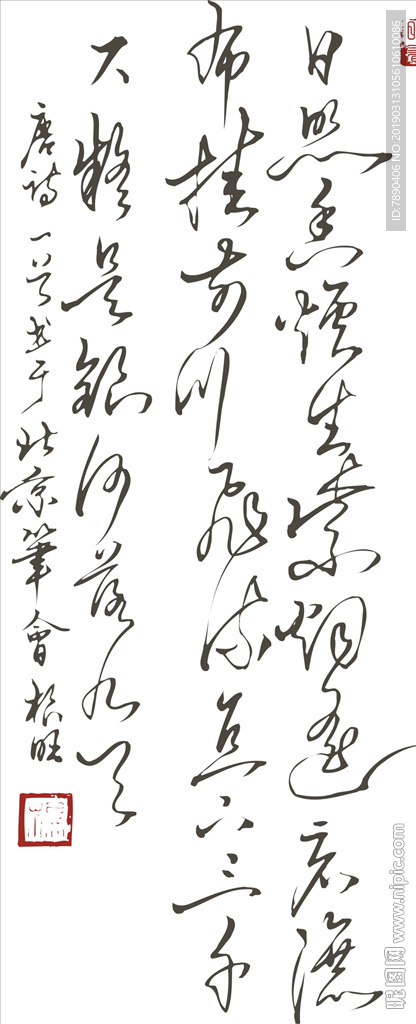 日照香爐生紫烟遥看瀑
布挂前川飛流直下三千
尺疑是銀河落九天
唐詩一首書于北京筆會 根旺
ID:7890406 NO:20190313105610610086
昵图网 www.nipic.com